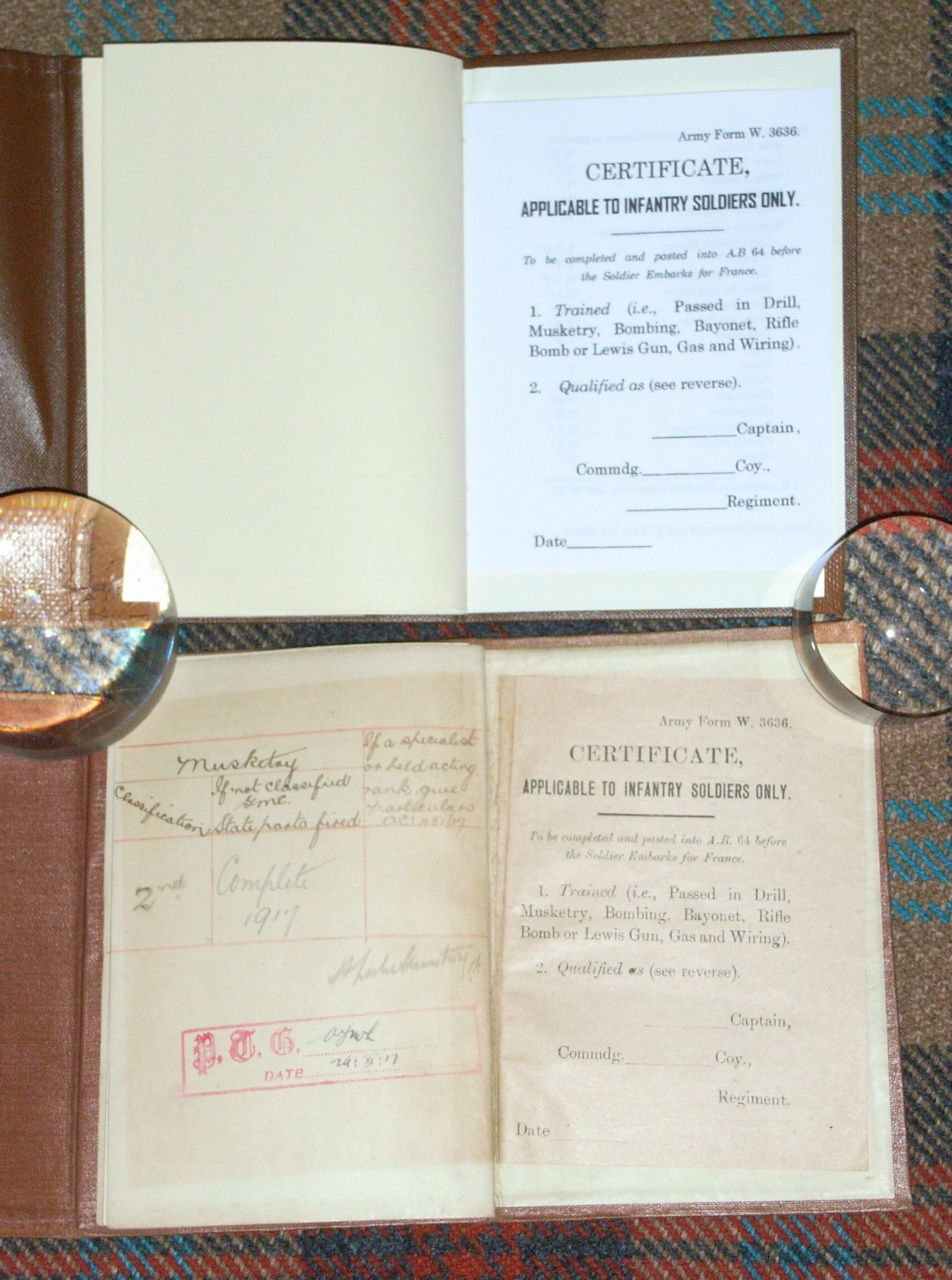 Army Form W. 3636.
CERTIFICATE,
APPLICABLE TO INFANTRY SOLDIERS ONLY.
To be completed and pasted into A.B 64 before
the Soldier Embarks for France.
1. Trained (i.e., Passed in Drill,
Musketry, Bombing, Bayonet, Rifle
Bomb or Lewis Gun, Gas and Wiring).
2. Qualified as (see reverse).
Captain,
Commdg. Coy.,
Regiment.
Date
Musketry
Classification
If not classified
State parts fired
If a specialist
or held acting
rank give
particulars
2nd
Complete
1917
P. T. G.
DATE
Army Form W. 3636.
CERTIFICATE,
APPLICABLE TO INFANTRY SOLDIERS ONLY.
To be completed and pasted into A.B. 64 before
the Soldier Embarks for France.
1. Trained (i.e., Passed in Drill,
Musketry, Bombing, Bayonet, Rifle
Bomb or Lewis Gun, Gas and Wiring).
2. Qualified as (see reverse).
Captain,
Commdg. Coy.,
Regiment.
Date